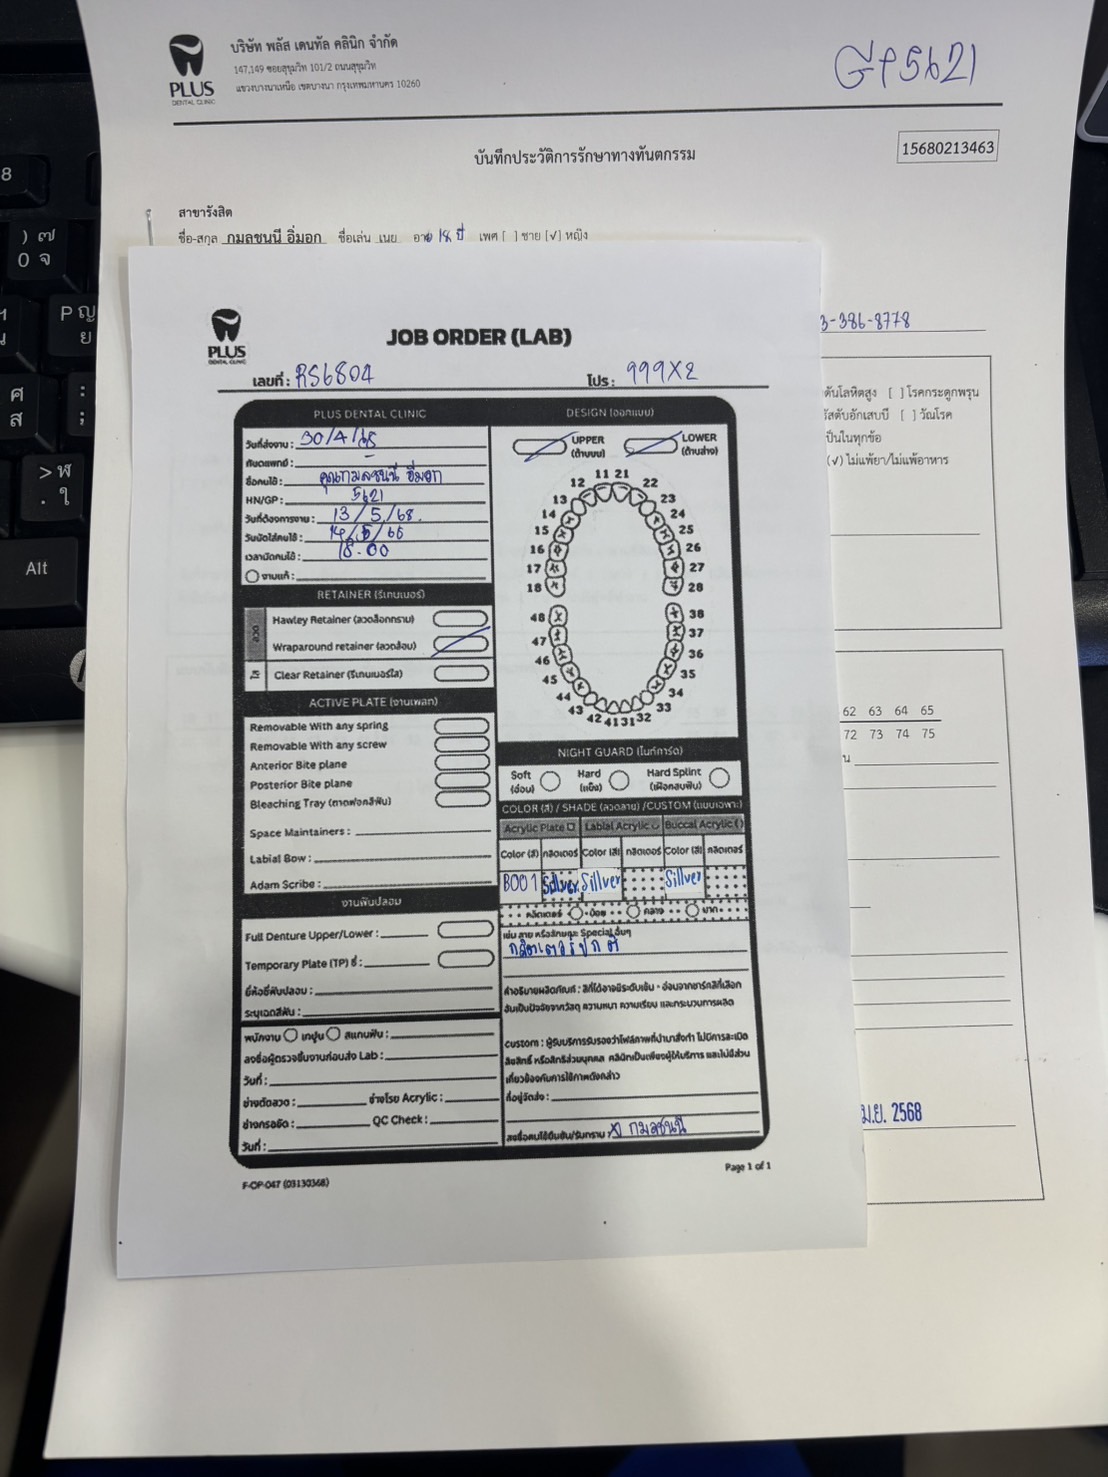 บริษัท พลัส เดนทัล คลินิก จำกัด
147,149 ซอยสุขุมวิท 101/2 ถนนสุขุมวิท
แขวงบางนาเหนือ เขตบางนา กรุงเทพมหานคร 10260
PLUS
DENTAL CLINIC
GP5621
บันทึกประวัติการรักษาทางทันตกรรม
15680213463
สาขารังสิต
ชื่อ-สกุล กมลชนนี อิ่มอก ชื่อเล่น เนย อายุ 18 ปี เพศ [ ] ชาย [√] หญิง
3-386-8778
ดันโลหิตสูง [ ] โรคกระดูกพรุน
รัสตับอักเสบบี [ ] วัณโรค
เป็นในทุกข้อ
(√) ไม่แพ้ยา/ไม่แพ้อาหาร
62 63 64 65
72 73 74 75
เม.ย. 2568
PLUS
DENTAL CLINIC
JOB ORDER (LAB)
เลขที่ : RS6804 โปร : 999x2
PLUS DENTAL CLINIC
วันที่ส่งงาน : 30/4/68
ทันตแพทย์ : -
ชื่อคนไข้ : คุณกมลชนนี อิ่มอก
HN/GP : 5621
วันที่ต้องการงาน : 13/5/68.
วันนัดใส่คนไข้ : 14/5/68
เวลานัดคนไข้ : 18.00
งานแก้ :
RETAINER (รีเทนเนอร์)
ลวด
Hawley Retainer (ลวดล็อกกราม)
Wraparound retainer (ลวดล้อม)
ใส
Clear Retainer (รีเทนเนอร์ใส)
ACTIVE PLATE (งานเพลท)
Removable With any spring
Removable With any screw
Anterior Bite plane
Posterior Bite plane
Bleaching Tray (ถาดฟอกสีฟัน)
Space Maintainers :
Labial Bow :
Adam Scribe :
งานฟันปลอม
Full Denture Upper/Lower :
Temporary Plate (TP) ซี่ :
ยี่ห้อซี่ฟันปลอม :
ระบุเฉดสีฟัน :
พนักงาน เทปูน สแกนฟัน :
ลงชื่อผู้ตรวจชิ้นงานก่อนส่ง Lab :
วันที่ :
ช่างดัดลวด : ช่างโรย Acrylic :
ช่างกรอขัด : QC Check :
วันที่ :
DESIGN (ออกแบบ)
UPPER (ด้านบน)
LOWER (ด้านล่าง)
11 21
12 22
13 23
14 24
15 25
16 26
17 27
18 28
48 38
47 37
46 36
45 35
44 34
43 33
42 41 31 32
NIGHT GUARD (ไนท์การ์ด)
Soft (อ่อน) Hard (แข็ง) Hard Splint (เฝือกสบฟัน)
COLOR (สี) / SHADE (ลวดลาย) /CUSTOM (แบบเฉพาะ)
Acrylic Plate Labial Acrylic Buccal Acrylic
Color (สี) กลิตเตอร์ Color (สี) กลิตเตอร์ Color (สี) กลิตเตอร์
B001 Sillver Sillver Sillver
กลิตเตอร์ น้อย กลาง มาก
เช่น ลาย หรือลักษณะ Special อื่นๆ
กลิตเตอร์ปกติ
คำอธิบายผลิตภัณฑ์ : สีที่ได้อาจมีระดับเข้ม - อ่อนจากชาร์ตสีที่เลือก
อันเป็นปัจจัยจากวัสดุ ความหนา ความเรียบ และกระบวนการผลิต
custom : ผู้รับบริการรับรองว่าไฟล์ภาพที่นำมาสั่งทำ ไม่มีการละเมิด
ลิขสิทธิ์ หรือสิทธิส่วนบุคคล คลินิกเป็นเพียงผู้ให้บริการ และไม่มีส่วน
เกี่ยวข้องกับการใช้ภาพดังกล่าว
ที่อยู่จัดส่ง :
ลงชื่อคนไข้ยืนยัน/รับทราบ : x กมลชนนี
F-OP-047 (03130368)
Page 1 of 1
8
) ๗
0 จ
P ญ
ย
ศ
ส
> ฬ
. ใ
Alt